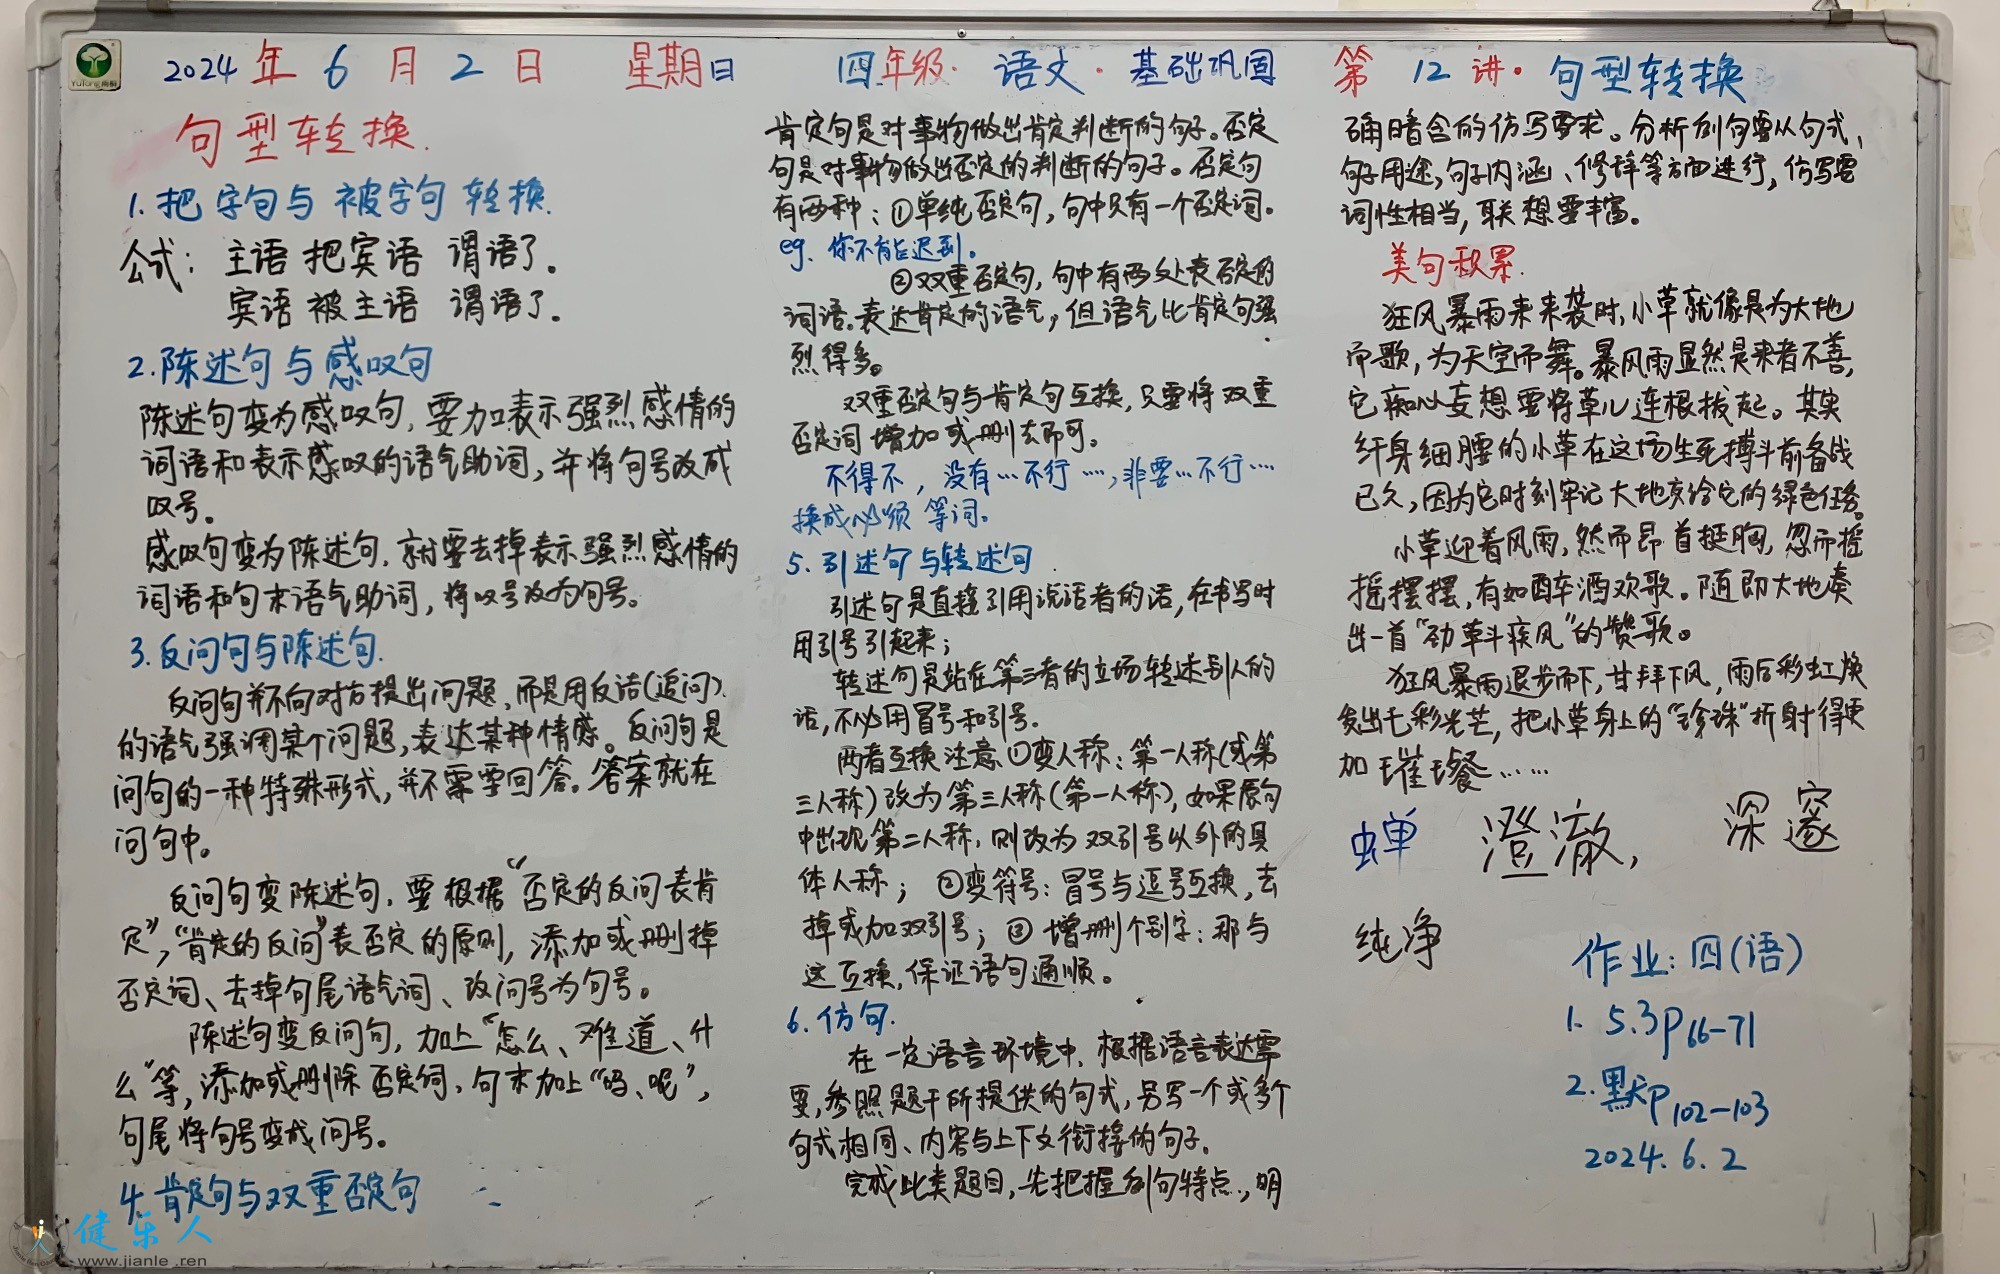 2024年6月2日 星期日 四年级·语文·基础巩固 第12讲·句型转换
句型转换.
1.把字句与被字句转换.
公式：主语把宾语 谓语了。
宾语被主语 谓语了。
2.陈述句与感叹句
陈述句变为感叹句，要加表示强烈感情的
词语和表示感叹的语气助词，并将句号改成
叹号。
感叹句变为陈述句，就要去掉表示强烈感情的
词语和句末语气助词，将叹号改为句号。
3.反问句与陈述句.
反问句并不向对方提出问题，而是用反诘(追问)
的语气强调某个问题，表达某种情感。反问句是
问句的一种特殊形式，并不需要回答。答案就在
问句中。
反问句变陈述句，要根据“否定的反问表肯
定”，“肯定的反问”表否定的原则，添加或删掉
否定词、去掉句尾语气词、改问号为句号。
陈述句变反问句，加上“怎么、难道、什
么”等，添加或删除否定词，句末加上“吗、呢”，
句尾将句号变成问号。
4.肯定句与双重否定句
肯定句是对事物做出肯定判断的句子。否定
句是对事物做出否定的判断的句子。否定句
有两种：①单纯否定句，句中只有一个否定词。
eg. 你不能迟到。
②双重否定句，句中有两处表否定的
词语。表达肯定的语气，但语气比肯定句强
烈得多。
双重否定句与肯定句互换，只要将双重
否定词增加或删去即可。
不得不，没有…不行…，非要…不行…
换成必须等词。
5.引述句与转述句
引述句是直接引用说话者的话，在书写时
用引号引起来；
转述句是站在第三者的立场转述别人的
话，不必用冒号和引号。
两者互换注意①变人称：第一人称(或第
三人称)改为第三人称(第一人称)，如果原句
中出现第二人称，则改为双引号以外的具
体人称；②变符号：冒号与逗号互换，去
掉或加双引号；③增删个别字：那与
这互换，保证语句通顺。
6.仿句.
在一定语言环境中，根据语言表达需
要，参照题干所提供的句式，另写一个或多个
句式相同、内容与上下文衔接的句子。
完成此类题目，先把握例句特点，明
确暗含的仿写要求。分析例句要从句式、
句子用途，句子内涵、修辞等方面进行，仿写要
词性相当，联想要丰富。
美句积累.
狂风暴雨来来袭时，小草就像是为大地
而歌，为天空而舞。暴风雨显然是来者不善，
它痴心妄想要将草儿连根拔起。其实
纤身细腰的小草在这场生死搏斗前备战
已久，因为它时刻牢记大地交给它的绿色任务。
小草迎着风雨，然而昂首挺胸，忽而摇
摇摆摆，有如醉酒欢歌。随即大地奏
出一首“劲草斗疾风”的赞歌。
狂风暴雨退步而下，甘拜下风，雨后彩虹焕
发出七彩光芒，把小草身上的“珍珠”折射得更
加璀璨……
蝉 澄澈， 深邃
纯净
作业：四(语)
1. 5.3P66-71
2.默P102-103
2024.6.2
YuTong雨桐
健乐人
www.jianle.ren